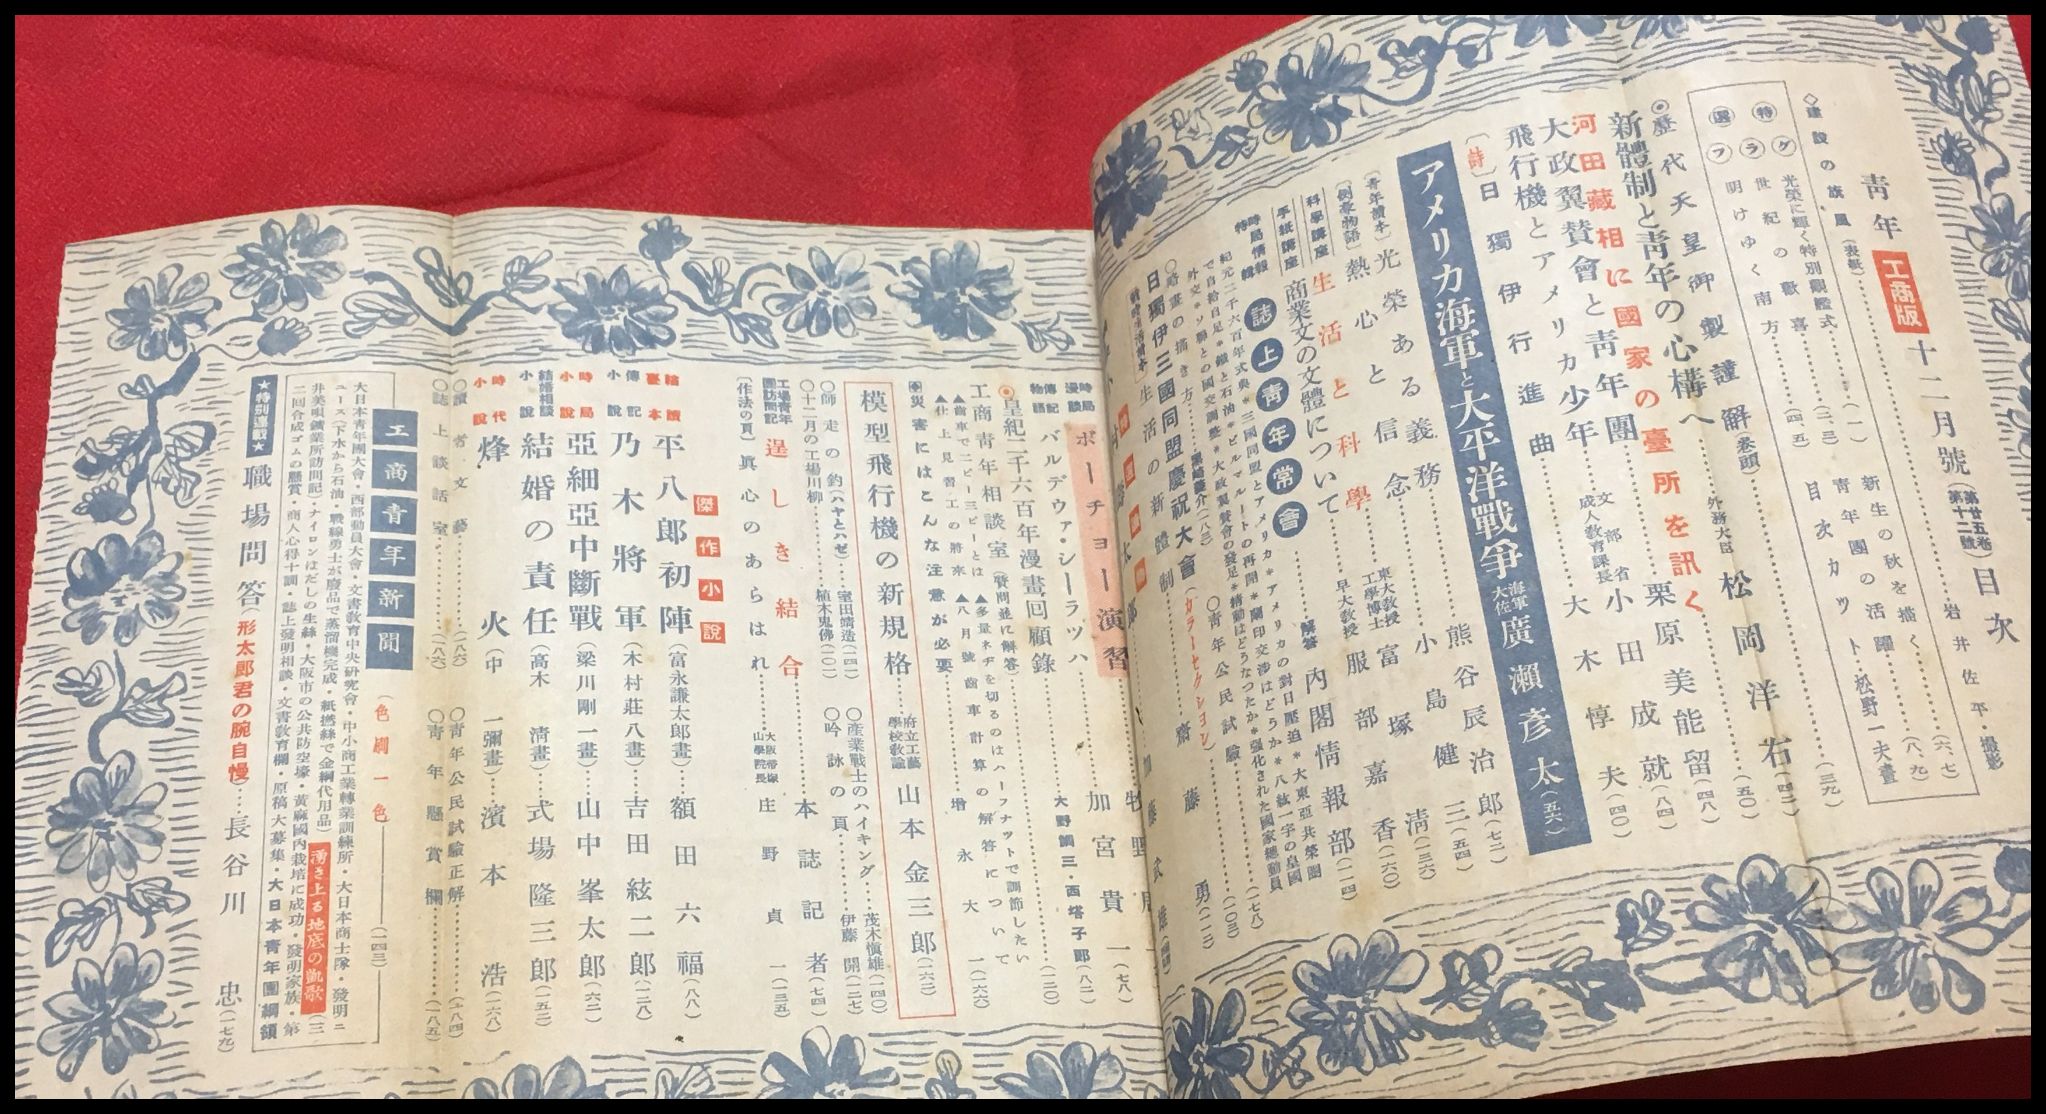 青年 工商版 十二月號(第廿五卷 第十二號)目次
◇建設の旗風(表紙)……岩井佐平撮影
特グラフ選
光榮に輝く特別觀艦式……(二、三)
世紀の歡喜……(四、五)
明けゆく南方
新生の秋を描く……(六、七)
青年團の活躍……(八、九)
目次カット・松野一夫畫
◉歷代天皇御製謹解(卷頭)……(三九)
新體制と靑年の心構へ……外務大臣 松岡洋右(四二)
河田藏相に國家の臺所を訊く……(五〇)
大政翼賛會と靑年團……栗原美能留(四八)
飛行機とアメリカ少年……文部省成人教育課長 小田成就(八四)
〔詩〕日獨伊行進曲……大木惇夫(四〇)
アメリカ海軍と大平洋戰爭 海軍大佐 廣瀨彥太(五六)
〔靑年讀本〕光榮ある義務……熊谷辰治郎(七二)
〔偶象物語〕熱心と信念……小島健三(五四)
科學講座 生活と科學……東大教授 工學博士 富塚清(三六)
手紙講座 商業文の文體について……早大教授 服部嘉香(一六〇)
時局情報特輯 誌上靑年常會……解答 內閣情報部(一一四)
紀元二千六百年式典＊三國同盟とアメリカ＊アメリカの對日壓迫＊大東亞共榮圈
で自給自足＊鐵と石油＊ビルマルートの再開＊蘭印交涉はどうか＊八紘一宇の皇國
外交＊ソ聯との國交調整＊大政翼賛會の發足＊精動はどうなつたか＊强化された國家總動員……(七八)
○略畫の描き方……(八三)
○靑年公民試驗……(一〇三)
日獨伊三國同盟慶祝大會(カラーセクション)……齋藤勇(一一二)
生活の新體制
時局漫談 ポーチョー演習
傳記物語 バルデウァ・シーラッハ……加宮貴一(七八)
◉皇紀二千六百年漫畫回顧錄……大野鯛三・西塔子郎(八二)
工商靑年相談室(質問並に解答)……(一二〇)
▲齒車で二ピー三ピーとは ▲多量ネヂを切るのはハーフナットで調節したい
▲仕上見習工の將來 ▲八月號齒車計算の解答について
◈災害にはこんな注意が必要……增永大一(一六六)
模型飛行機の新規格……府立工藝學校教諭 山本金三郎(一六二)
○師走の釣(ハヤとハゼ)……室田靖造(一四一)
○產業戰士のハイキング……茂木愼雄(一四〇)
○十二月の工場川柳……植木鬼佛(一〇一)
○吟詠の頁……伊藤開(一二七)
工場靑年團訪問記 逞しき結合……本誌記者(七四)
〔作法の頁〕眞心のあらはれ……大阪帝塚山學院長 庄野貞一(一三五)
傑作小說
繪讀臺本 平八郎初陣(富永謙太郎畫)……額田六福(八八)
傳記小說 乃木將軍(木村莊八畫)……吉田絃二郎(一二八)
時局小說 亞細亞中斷戰(梁川剛一畫)……山中峯太郎(六二)
結婚相談小說 結婚の責任(高木淸畫)……式場隆三郎(一五二)
時代小說 烽火(中一彌畫)……濱本浩(一六八)
○讀者文藝……(一八六)
○靑年公民試驗正解……(一八四)
○誌上談話室……(一八六)
○靑年懸賞欄……(一八五)
工商靑年新聞(色刷一色)——(一四三)
大日本靑年團大會・西部動員大會・文書教育中央研究會・中小商工業轉業訓練所・大日本商士隊・發明ニ
ュース(下水から石油・戰線勇士水廢品で蒸溜機完成・紙撚絲で金網代用品) 湧き上る地底の凱歌(三
井美唄鑛業所訪問記)・ナイロンはだしの生絲・大阪市の公共防空壕・黃麻國內栽培に成功・發明家族・第
二回合成ゴムの懸賞・商人心得十訓・誌上發明相談・文書教育欄・原稿大募集・大日本靑年團綱領
★特別連載★ 職場問答 形太郎君の腕自慢……長谷川忠(一七九)